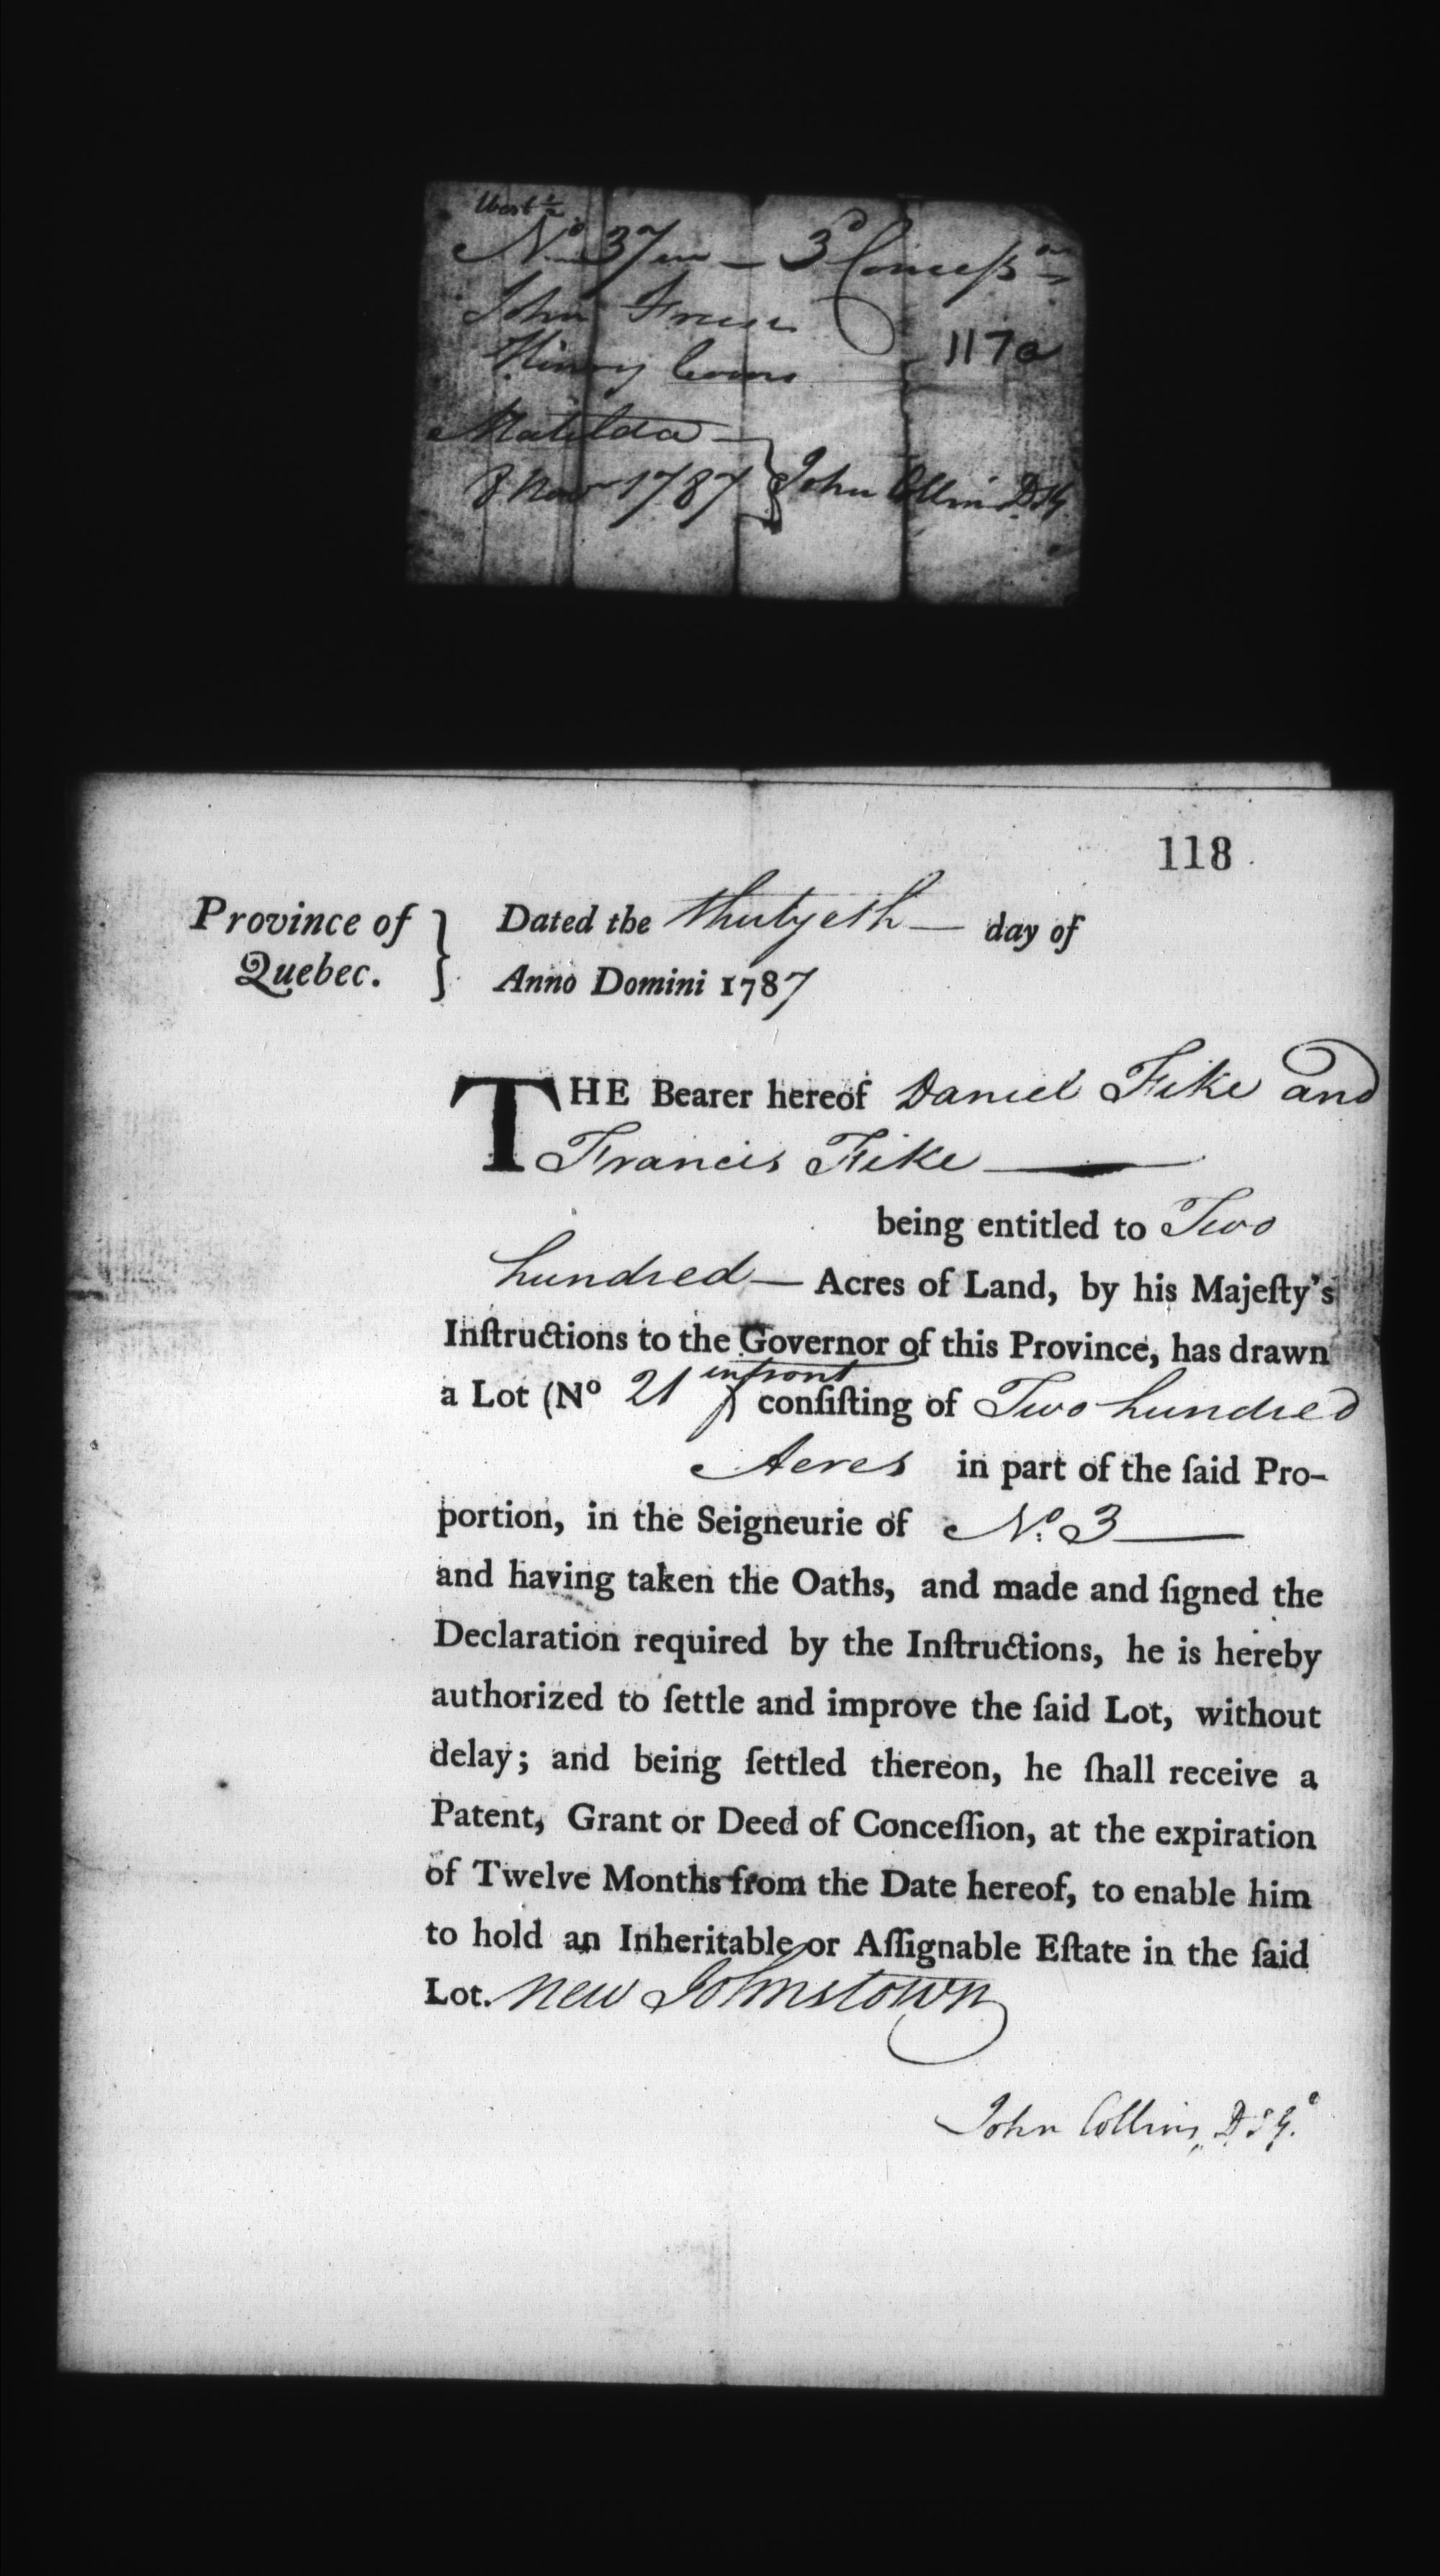 West ½
No 37 in — 3d Concessn
John Freese
Henry Coons
117a
Matilda —
8 Novr 1787 } John Collins D.S.G.
118
Province of Quebec. } Dated the thirtyeth — day of
Anno Domini 1787
THE Bearer hereof Daniel Fike and
Francis Fike —
being entitled to Two
hundred — Acres of Land, by his Majeſty's
Inſtructions to the Governor of this Province, has drawn
a Lot (No 21 in front) conſiſting of Two hundred
Acres in part of the ſaid Pro-
portion, in the Seigneurie of No. 3 —
and having taken the Oaths, and made and ſigned the
Declaration required by the Inſtructions, he is hereby
authorized to ſettle and improve the ſaid Lot, without
delay; and being ſettled thereon, he ſhall receive a
Patent, Grant or Deed of Conceſſion, at the expiration
of Twelve Months from the Date hereof, to enable him
to hold an Inheritable or Aſſignable Eſtate in the ſaid
Lot. New Johnstown
John Collins, D.S.G.